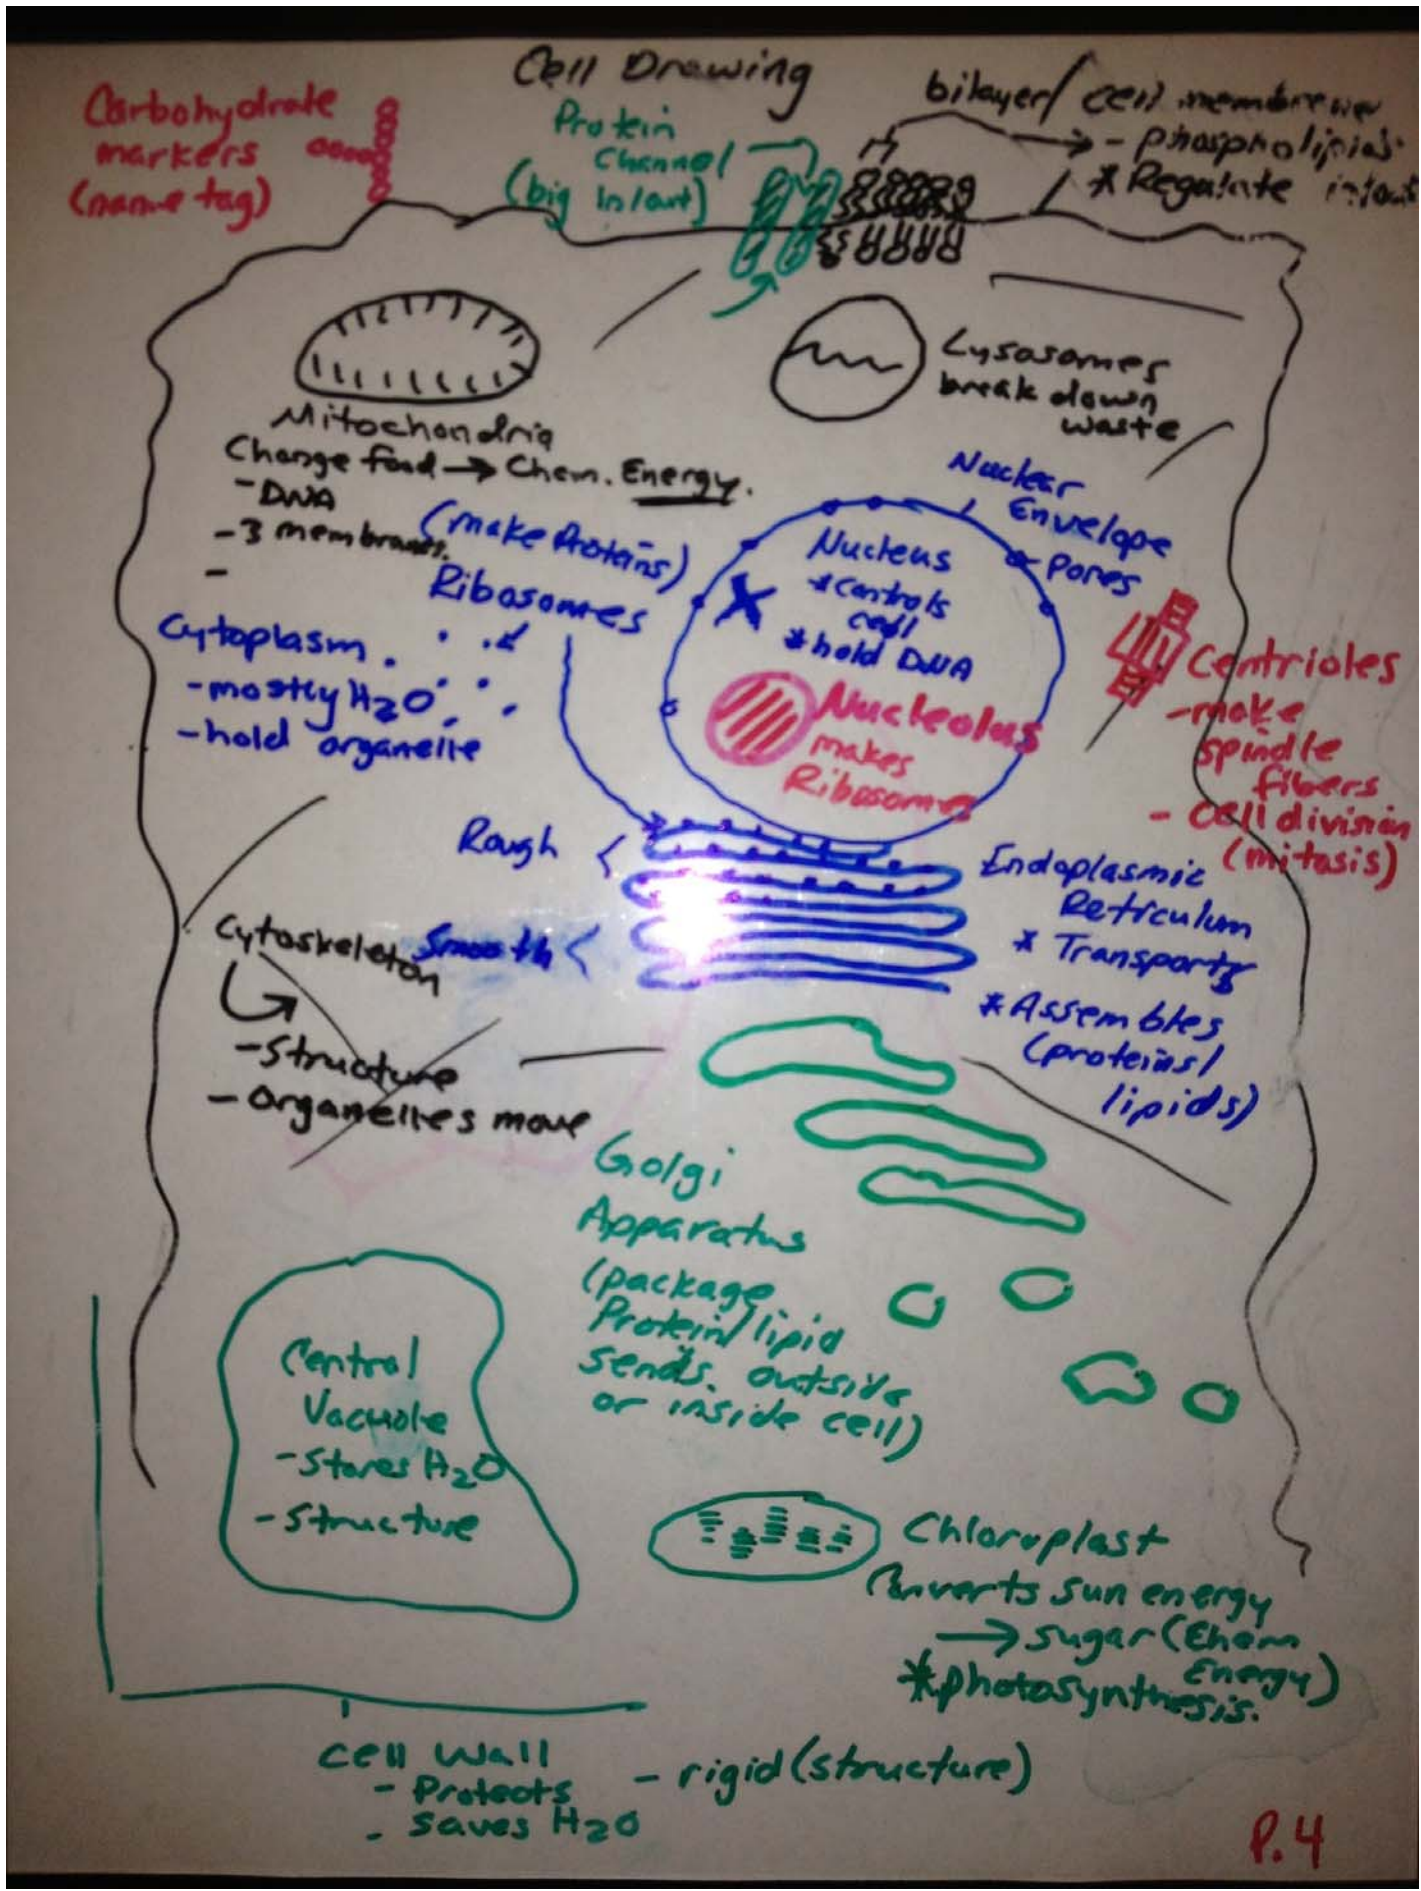 Cell Drawing
Carbohydrate
markers
(name tag)
Protein
Channel
(big in/out)
bilayer/ cell membrane
- phospholipids
* Regulate in/out
Lysosomes
break down
waste
Mitochondria
Change food → Chem. Energy.
- DNA
- 3 membranes.
-
(make Proteins)
Ribosomes
Nuclear
Envelope
Pores
Nucleus
* controls
cell
* hold DNA
Nucleolus
makes
Ribosomes
Cytoplasm
- mostly H2O
- hold organelle
Centrioles
- make
spindle
fibers
- cell division
(mitosis)
Rough
Smooth
Endoplasmic
Reticulum
* Transports
* Assembles
(proteins/
lipids)
Cytoskeleton
- Structure
- Organelles move
Golgi
Apparatus
(package
Protein/lipid
sends outside
or inside cell)
Central
Vacuole
- Stores H2O
- Structure
Chloroplast
Converts sun energy
→ sugar (Chem
Energy)
* photosynthesis.
Cell Wall
- Protects
- saves H2O
- rigid (structure)
P. 4